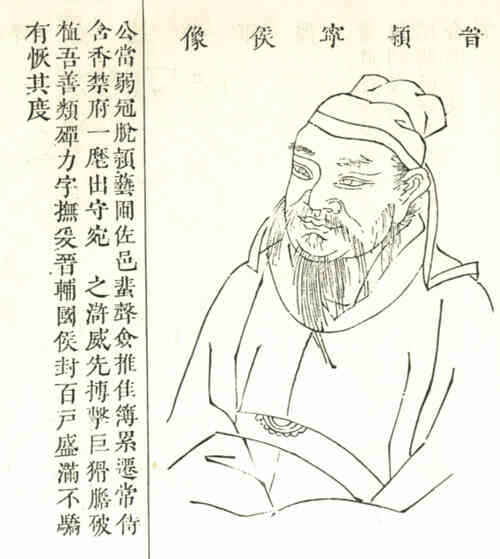 晉頴寕侯像
公當弱冠脫頴藝圃佐邑蜚聲僉推佳簿累遷常侍
含香禁府一麾出守宛 之滸威先搏擊巨猾膽破
植吾善類殫力字撫爰晉輔國侯封百戸盛滿不驕
有恢其度